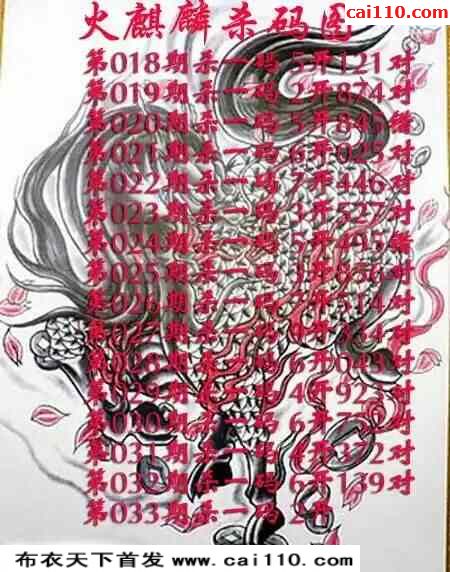 cai110.com
火麒麟杀码图
第018期杀一码 5开121对
第019期杀一码 2开874对
第020期杀一码 5开845错
第021期杀一码 6开025对
第022期杀一码 7开446对
第023期杀一码 3开527对
第024期杀一码 5开495错
第025期杀一码 开856对
第026期杀一码 开514对
第027期杀一码 开对
第028期杀一码 6开043对
第029期杀一码 4开923对
第030期杀一码 6开对
第031期杀一码 4开372对
第032期杀一码 6开139对
第033期杀一码 2开
布衣天下首发 www.cai110.com